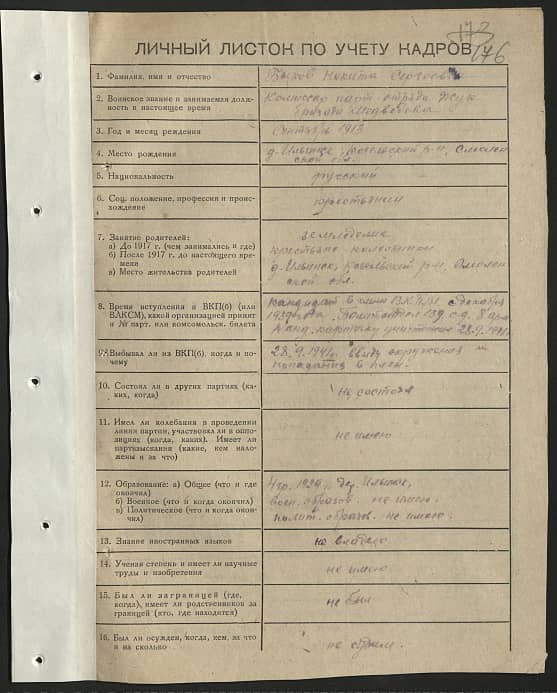 173
176
ЛИЧНЫЙ ЛИСТОК ПО УЧЕТУ КАДРОВ
1. Фамилия, имя и отчество
Быхов Никита Сергеевич
2. Воинское звание и занимаемая долж-
ность в настоящее время
Комиссар парт. отряда
бригада
3. Год и месяц рождения
Сентябрь 1913
4. Место рождения
д. Ильинск, р-н, Смолен
ской обл.
5. Национальность
русский
6. Соц. положение, профессия и проис-
хождение
крестьянин
7. Занятие родителей:
а) До 1917 г. (чем занимались и где)
б) После 1917 г. до настоящего вре-
мени
в) Место жительства родителей
земледелие
крестьяне колхозники
д. Ильинск, р-н, Смолен
ской обл.
8. Время вступления в ВКП(б) (или
ВЛКСМ), какой организацией принят
и № парт. или комсомольск. билета
кандидат в члены ВКП(б), декабрь
139 с.д.
канд. карточку уничтожил 28.9.1941г
9. Выбывал ли из ВКП(б), когда и по-
чему
28.9.1941г. ввиду окружения и
попадания в плен.
10. Состоял ли в других партиях (ка-
ких, когда)
не состоял
11. Имел ли колебания в проведении
линии партии, участвовал ли в оппо-
зициях (когда, каких). Имеет ли
партвзыскания (какие, кем нало-
жены и за что)
не имею
12. Образование: а) Общее (что и где
окончил)
б) Военное (что и когда окончил)
в) Политическое (что и когда окон-
чил)
1929 г. дер. Ильинск,
воен. образов. не имею.
полит. образов. не имею.
13. Знание иностранных языков
не владею
14. Ученая степень и имеет ли научные
труды и изобретения
не имею
15. Был ли заграницей (где,
когда), имеет ли родственников за
границей (кто, где находится)
не был
16. Был ли осужден, когда, кем, за что
и на сколько
не судим.